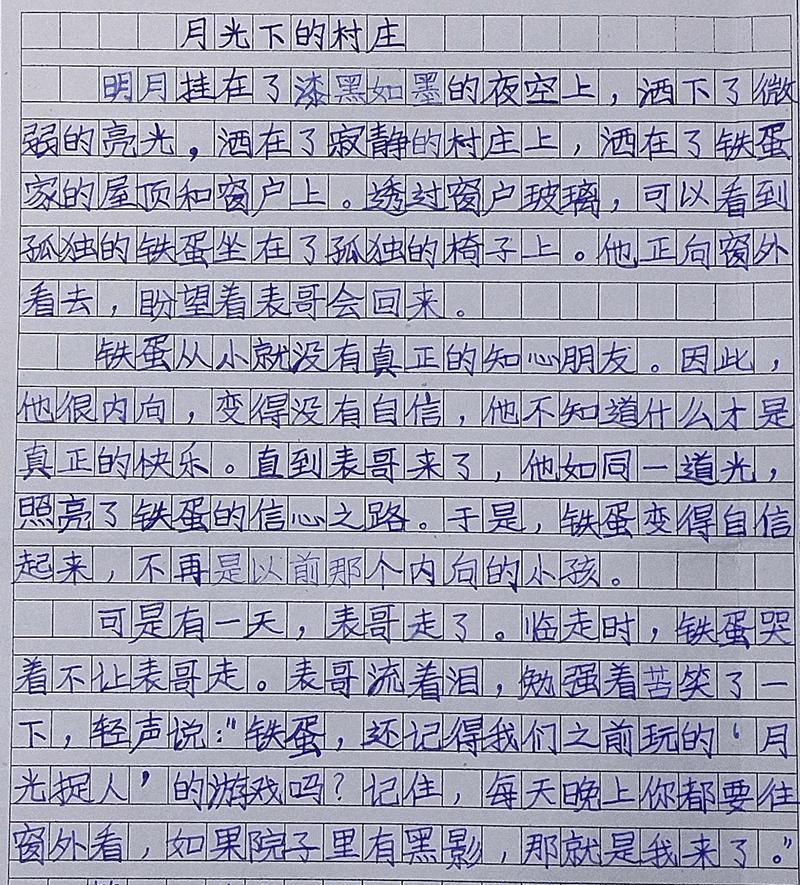 月光下的村庄
明月挂在了漆黑如墨的夜空上，洒下了微
弱的亮光，洒在了寂静的村庄上，洒在了铁蛋
家的屋顶和窗户上。透过窗户玻璃，可以看到
孤独的铁蛋坐在了孤独的椅子上。他正向窗外
看去，盼望着表哥会回来。
铁蛋从小就没有真正的知心朋友。因此，
他很内向，变得没有自信，他不知道什么才是
真正的快乐。直到表哥来了，他如同一道光，
照亮了铁蛋的信心之路。于是，铁蛋变得自信
起来，不再是以前那个内向的小孩。
可是有一天，表哥走了。临走时，铁蛋哭
着不让表哥走。表哥流着泪，勉强着苦笑了一
下，轻声说：“铁蛋，还记得我们之前玩的‘月
光捉人’的游戏吗？记住，每天晚上你都要往
窗外看，如果院子里有黑影，那就是我来了。”